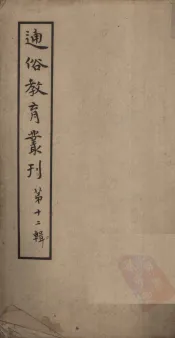 通俗教育叢刊第十二輯